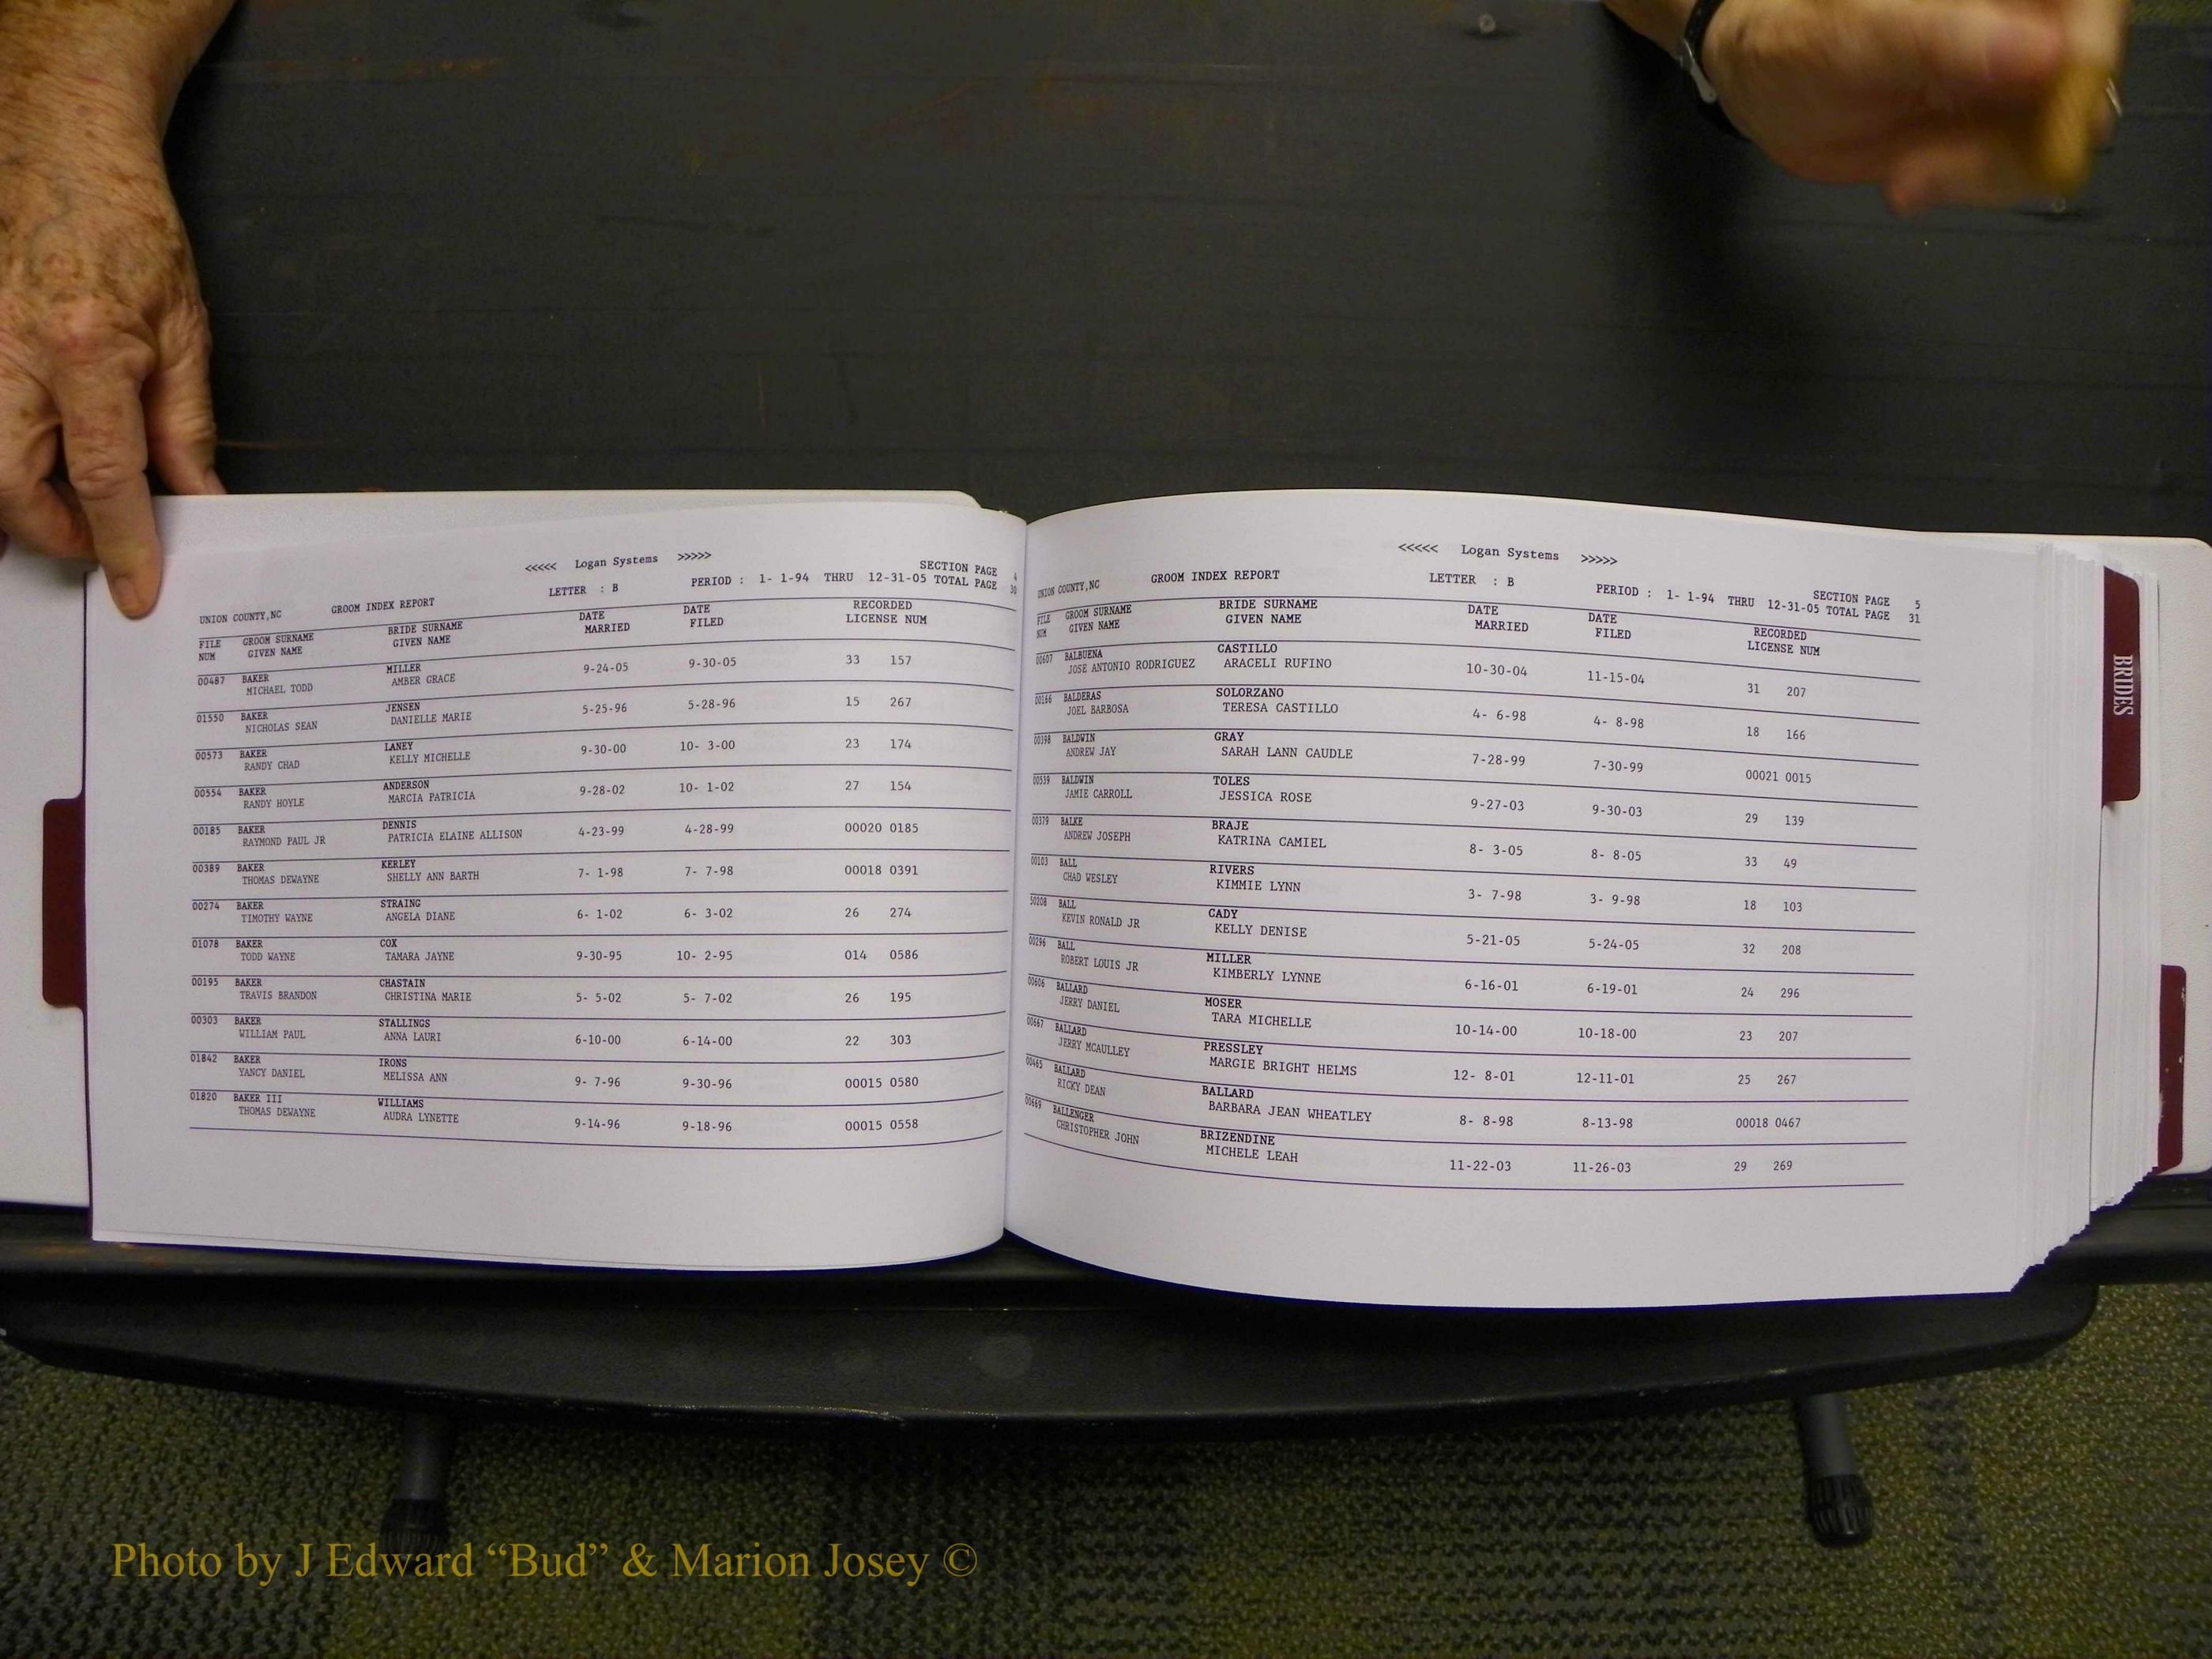 <<<<< Logan Systems >>>>>
UNION COUNTY,NC GROOM INDEX REPORT LETTER : B PERIOD : 1- 1-94 THRU 12-31-05 SECTION PAGE 4
TOTAL PAGE 30
FILE GROOM SURNAME BRIDE SURNAME DATE DATE RECORDED
NUM GIVEN NAME GIVEN NAME MARRIED FILED LICENSE NUM
00487 BAKER MILLER 9-24-05 9-30-05 33 157
MICHAEL TODD AMBER GRACE
01550 BAKER JENSEN 5-25-96 5-28-96 15 267
NICHOLAS SEAN DANIELLE MARIE
00573 BAKER LANEY 9-30-00 10- 3-00 23 174
RANDY CHAD KELLY MICHELLE
00554 BAKER ANDERSON 9-28-02 10- 1-02 27 154
RANDY HOYLE MARCIA PATRICIA
00185 BAKER DENNIS 4-23-99 4-28-99 00020 0185
RAYMOND PAUL JR PATRICIA ELAINE ALLISON
00389 BAKER KERLEY 7- 1-98 7- 7-98 00018 0391
THOMAS DEWAYNE SHELLY ANN BARTH
00274 BAKER STRAING 6- 1-02 6- 3-02 26 274
TIMOTHY WAYNE ANGELA DIANE
01078 BAKER COX 9-30-95 10- 2-95 014 0586
TODD WAYNE TAMARA JAYNE
00195 BAKER CHASTAIN 5- 5-02 5- 7-02 26 195
TRAVIS BRANDON CHRISTINA MARIE
00303 BAKER STALLINGS 6-10-00 6-14-00 22 303
WILLIAM PAUL ANNA LAURI
01842 BAKER IRONS 9- 7-96 9-30-96 00015 0580
YANCY DANIEL MELISSA ANN
01820 BAKER III WILLIAMS 9-14-96 9-18-96 00015 0558
THOMAS DEWAYNE AUDRA LYNETTE
<<<<< Logan Systems >>>>>
UNION COUNTY,NC GROOM INDEX REPORT LETTER : B PERIOD : 1- 1-94 THRU 12-31-05 SECTION PAGE 5
TOTAL PAGE 31
FILE GROOM SURNAME BRIDE SURNAME DATE DATE RECORDED
NUM GIVEN NAME GIVEN NAME MARRIED FILED LICENSE NUM
00607 BALBUENA CASTILLO 10-30-04 11-15-04 31 207
JOSE ANTONIO RODRIGUEZ ARACELI RUFINO
00166 BALDERAS SOLORZANO 4- 6-98 4- 8-98 18 166
JOEL BARBOSA TERESA CASTILLO
00398 BALDWIN GRAY 7-28-99 7-30-99 00021 0015
ANDREW JAY SARAH LANN CAUDLE
00539 BALDWIN TOLES 9-27-03 9-30-03 29 139
JAMIE CARROLL JESSICA ROSE
00379 BALKE BRAJE 8- 3-05 8- 8-05 33 49
ANDREW JOSEPH KATRINA CAMIEL
00103 BALL RIVERS 3- 7-98 3- 9-98 18 103
CHAD WESLEY KIMMIE LYNN
50208 BALL CADY 5-21-05 5-24-05 32 208
KEVIN RONALD JR KELLY DENISE
00296 BALL MILLER 6-16-01 6-19-01 24 296
ROBERT LOUIS JR KIMBERLY LYNNE
00606 BALLARD MOSER 10-14-00 10-18-00 23 207
JERRY DANIEL TARA MICHELLE
00667 BALLARD PRESSLEY 12- 8-01 12-11-01 25 267
JERRY MCAULLEY MARGIE BRIGHT HELMS
00465 BALLARD BALLARD 8- 8-98 8-13-98 00018 0467
RICKY DEAN BARBARA JEAN WHEATLEY
00669 BALLENGER BRIZENDINE 11-22-03 11-26-03 29 269
CHRISTOPHER JOHN MICHELE LEAH
BRIDES
Photo by J Edward “Bud” & Marion Josey ©